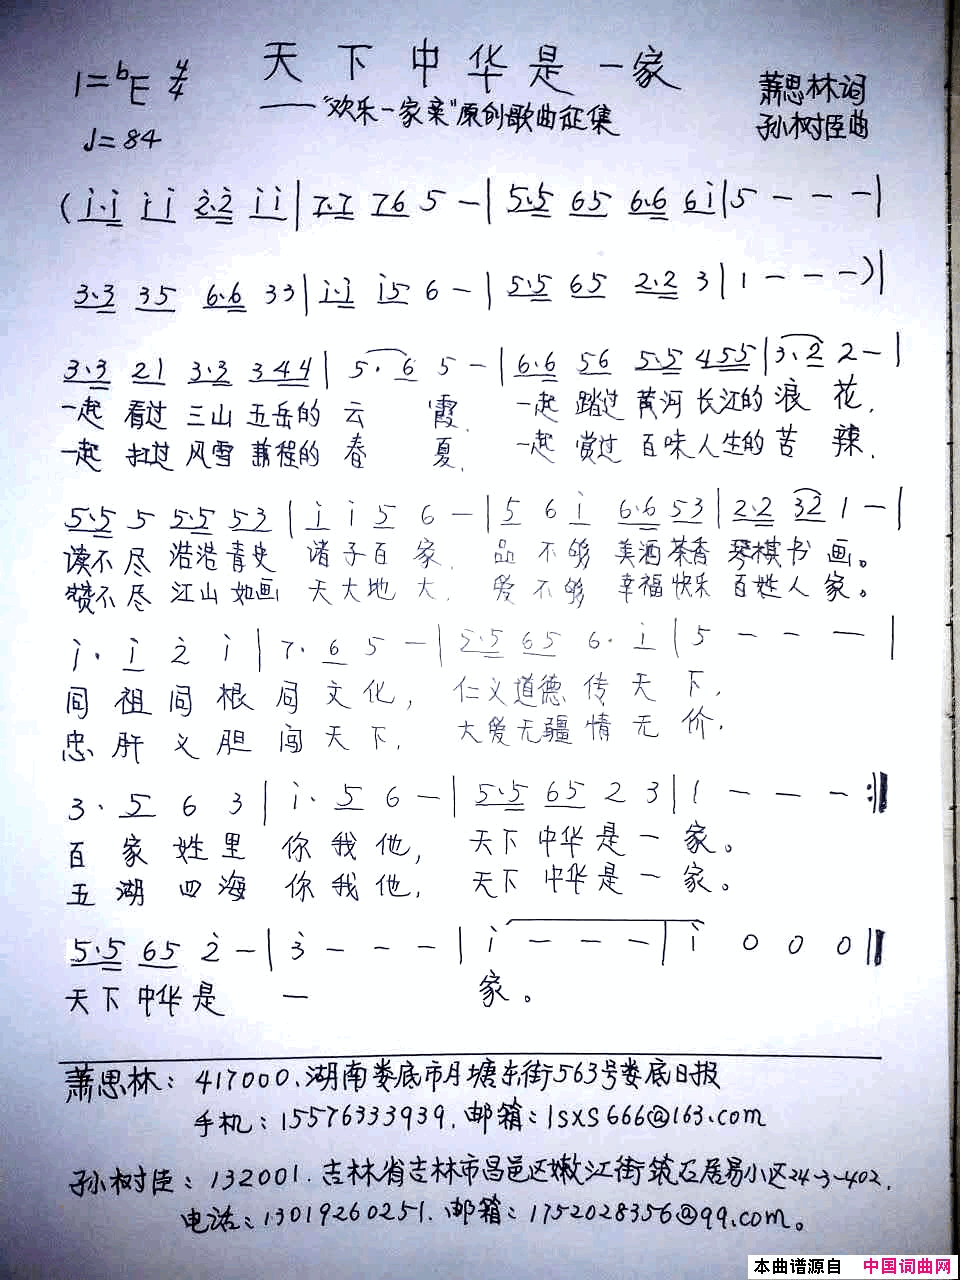 天下中华是一家
1=bE 4/4
——“欢乐一家亲”原创歌曲征集
萧思林词
孙树臣曲
♩=84
(i·i i i 2·2 i i | 7·7 76 5 - | 5·5 65 6·6 6i | 5 - - - |
3·3 35 6·6 33 | i·i i5 6 - | 5·5 65 2·2 3 | 1 - - -) |
3·3 21 3·3 344 | 5·6 5 - | 6·6 56 5·5 455 | 3·2 2 - |
一起 看过 三山 五岳的 云 霞, 一起 踏过 黄河 长江的 浪 花,
一起 扛过 风雪 兼程的 春 夏, 一起 赏过 百味 人生的 苦 辣,
5·5 5 5·5 53 | i i 5 6 - | 5 6 i 6·6 53 | 2·2 32 1 - |
读不 尽 浩浩 青史 诸子百家, 品 不够 美酒 茶香 琴棋书 画。
赞不 尽 江山 如画 天大地大, 爱 不够 幸福 快乐 百姓人 家。
i· i 2 i | 7· 6 5 - | 5·5 65 6· i | 5 - - - |
同 祖 同 根 同 文 化, 仁义道德 传 天 下,
忠 肝 义 胆 闯 天 下, 大爱无疆 情 无 价,
3· 5 6 3 | i· 5 6 - | 5·5 65 2 3 | 1 - - - :‖
百 家 姓 里 你 我 他, 天下 中华 是 一 家。
五 湖 四 海 你 我 他, 天下 中华 是 一 家。
5·5 65 2 - | 3 - - - | i - - - | i 0 0 0 ‖
天下 中华 是 一 家。
萧思林: 417000. 湖南娄底市月塘东街563号娄底日报
手机: 15576333939. 邮箱: lsxs666@163.com
孙树臣: 132001. 吉林省吉林市昌邑区嫩江街筑石居易小区24-3-402.
电话: 13019260251. 邮箱: 1752028356@qq.com。
本曲谱源自 中国词曲网